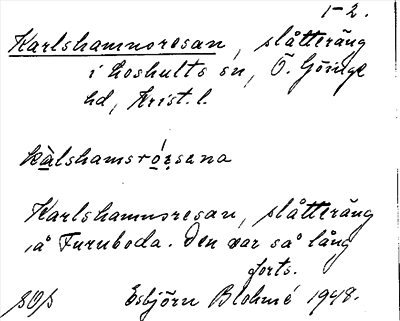 1-2.
Karlshamnsresan, slåtteräng
i Loshults sn, Ö. Göinge
hd, Krist. l.
kàlshamsróesana
Karlshamnsresan, slåtteräng
på Furuboda. Den var så lång
forts.
Esbjörn Blohmé 1948.